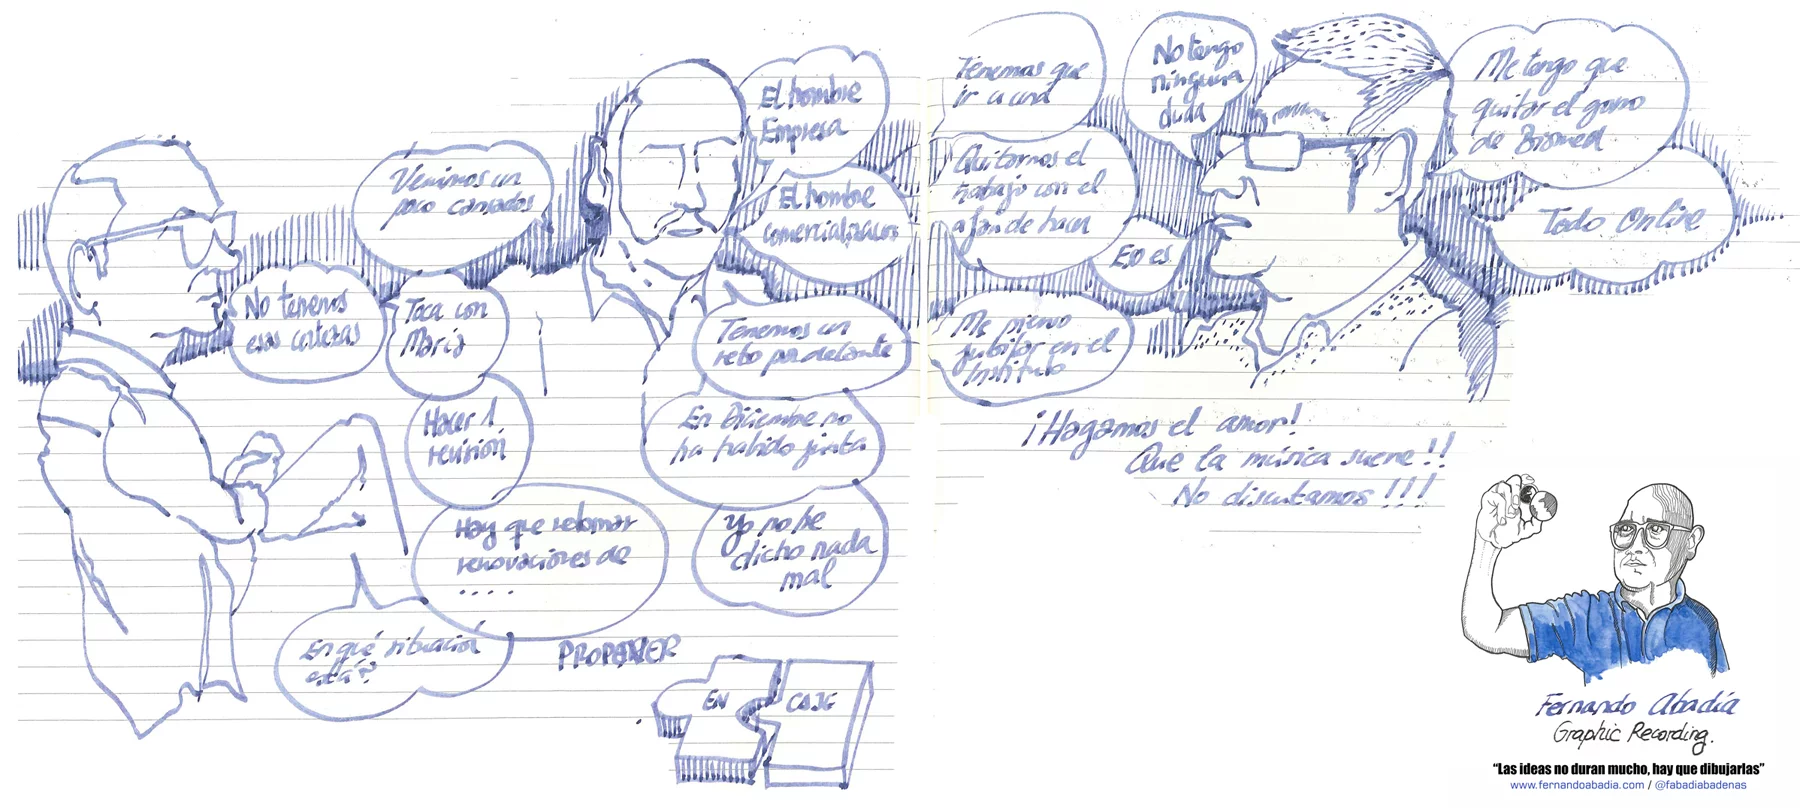 Venimos un
poco cansados
No tenemos
esas certezas
Toca con
María
Hacer 1
revisión
Hay que retomar
renovaciones de
....
En qué situación
está?
El hombre
Empresa
El hombre
Tenemos un
reto por delante
En Diciembre no
ha habido junta
Yo no he
dicho nada
mal
PROPONER
EN
CAJE
Tenemos que
ir a una
Quitarnos el
trabajo con el
afan de hacer
Eso es
Me pienso
jubilar en el
Instituto
No tengo
ninguna
duda
Me tengo que
quitar el gorro
de Biomed
Todo Online
¡Hagamos el amor!
Que la música suene!!
No discutamos!!!
Fernando Abadía
Graphic Recording.
“Las ideas no duran mucho, hay que dibujarlas”
www.fernandoabadia.com / @fabadiabadenas